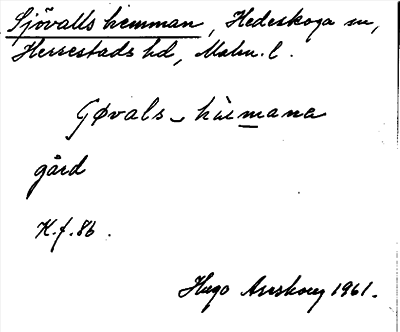 Sjövalls hemman, Hedeskoga sn,
Herrestads hd, Malm. l.
Gøvals hemana
gård
K.f. 86.
Hugo Areskoug 1961.